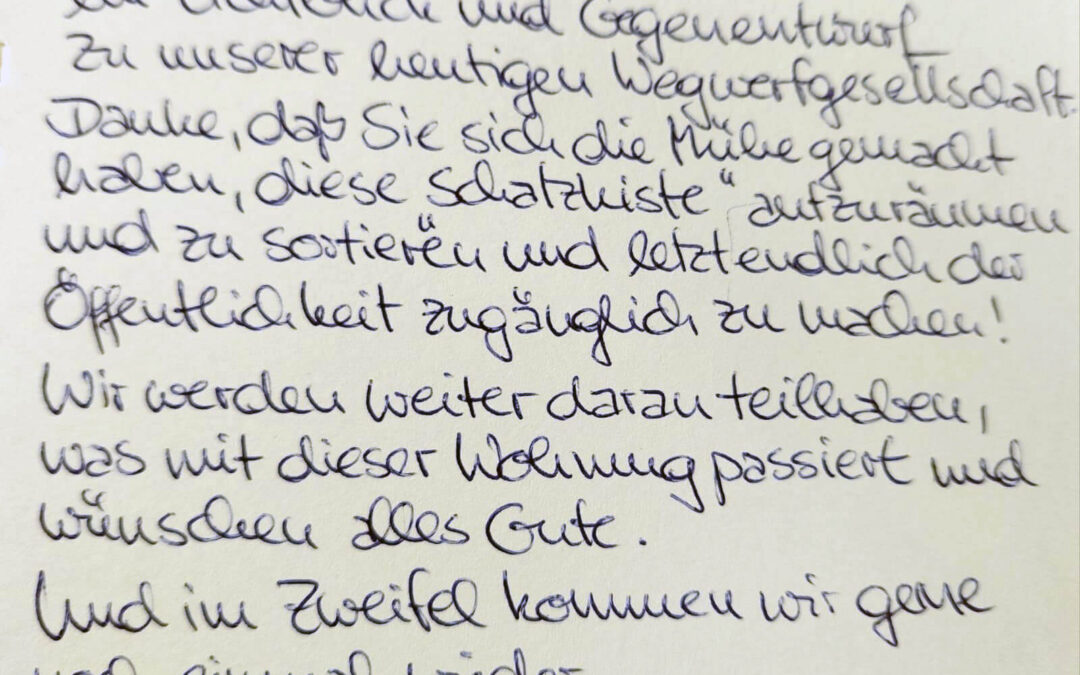 und Gegenentwurf
zu unserer heutigen Wegwerfgesellschaft.
Danke, daß Sie sich die Mühe gemacht
haben, diese Schatzkiste" aufzuräumen
und zu sortieren und letztendlich der
Öffentlichkeit zugänglich zu machen!
Wir werden weiter daran teilhaben,
was mit dieser Wohnung passiert und
wünschen alles Gute.
Und im Zweifel kommen wir gerne
noch einmal wieder